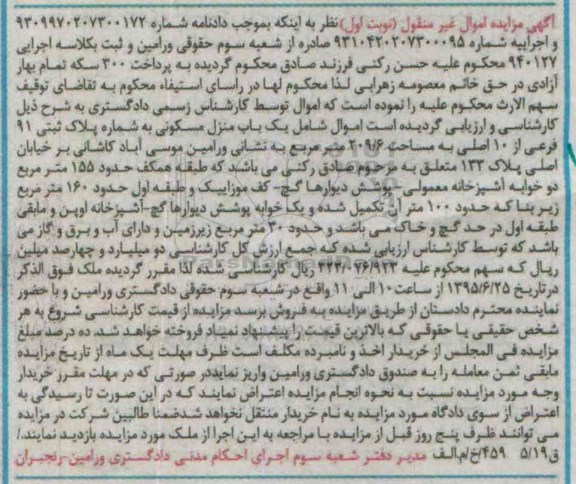 آگهی مزایده اموال غیر منقول (نوبت اول) نظر به اینکه بموجب دادنامه شماره ۹۳۰۹۹۷۰۲۰۷۳۰۰۱۷۲
و اجراییه شماره ۹۳۱۰۴۲۰۲۰۷۳۰۰۰۹۵ صادره از شعبه سوم حقوقی ورامین و ثبت بکلاسه اجرایی
۹۴۰۱۲۷ محکوم علیه حسن رکنی فرزند صادق محکوم گردیده به پرداخت ۳۰۰ سکه تمام بهار
آزادی در حق خانم معصومه زهرابی لذا محکوم لها در راستای استیفاء محکوم به تقاضای توقیف
سهم الارث محکوم علیه را نموده است که اموال توسط کارشناس رسمی دادگستری به شرح ذیل
کارشناسی و ارزیابی گردیده است اموال شامل یک باب منزل مسکونی به شماره پلاک ثبتی ۹۱
فرعی از ۱۰ اصلی به مساحت ۲۰۹/۶ متر مربع به نشانی ورامین موسی آباد کاشانی بر خیابان
اصلی پلاک ۱۳۳ متعلق به مرحوم صادق رکنی می باشد که طبقه همکف حدود ۱۵۵ متر مربع
دو خوابه آشپزخانه معمولی- پوشش دیوارها گچ- کف موزاییک و طبقه اول حدود ۱۶۰ متر مربع
زیر بنا که حدود ۱۰۰ متر آن تکمیل شده و یک خوابه پوشش دیوارها گچ-آشپزخانه اوپن و مابقی
طبقه اول در حد گچ و خاک می باشد و حدود ۳۰ متر مربع زیرزمین و دارای آب و برق و گاز می
باشد که توسط کارشناس ارزیابی شده که جمع ارزش کل کارشناسی دو میلیارد و چهارصد میلین
ریال که سهم محکوم علیه ۳۲۳/۰۷۶/۹۲۳ ریال کارشناسی شده لذا مقرر گردیده ملک فوق الذکر
در تاریخ ۱۳۹۵/۶/۲۵ از ساعت ۱۰ الی ۱۱ واقع در شعبه سوم حقوقی دادگستری ورامین و با حضور
نماینده محترم دادستان از طریق مزایده به فروش برسد مزایده از قیمت کارشناسی شروع به هر
شخص حقیقی یا حقوقی که بالاترین قیمت را پیشنهاد نمیاد فروخته خواهد شد. ده درصد مبلغ
مزایده فی المجلس از خریدار اخذ و نامبرده مکلف است ظرف مهلت یک ماه از تاریخ مزایده
مابقی ثمن معامله را به صندوق دادگستری ورامین واریز نماید در صورتی که در مهلت مقرر خریدار
وجه مورد مزایده نسبت به نحوه انجام مزایده اعتراض نمایند که در این صورت تا رسیدگی به
اعتراض از سوی دادگاه مورد مزایده به نام خریدار منتقل نخواهد شد ضمنا طالبین شرکت در مزایده
می توانند ظرف پنج روز قبل از مزایده با مراجعه به این اجرا از ملک مورد مزایده بازدید نمایند./
ق۵/۱۹ ۴۵۹/خ/م.الف مدیر دفتر شعبه سوم اجرای احکام مدنی دادگستری ورامین-رنجبران